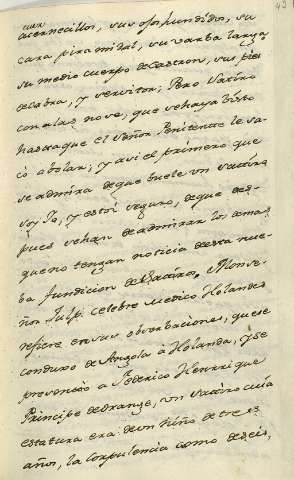 43
cuernecillos, sus ojos hundidos, su
cara piramidal, su varba larga
su medio cuerpo de Castron, sus pies
de Cabra, y servitor; Pero Satiro
con alas no se, que se haya visto
hasta que el Señor Penitente le sa
có a bolar; y asi el primero que
se admira de que buele un satiro
soy Yo, y estoi seguro, de que des-
pues se han de admirar los demas
que no tengan noticia de esta nue-
ba fundicion de Satiros. Monse-
ñor Tulpi celebre Medico Holandes
refiere en sus observaciones, que se
conduxo de Angola à Holanda, y se
presentò a Federico Henrrique
Principe de Orange, un Satiro cuia
estatura era de un Niño de tres
años, la Corpulencia como de seis,